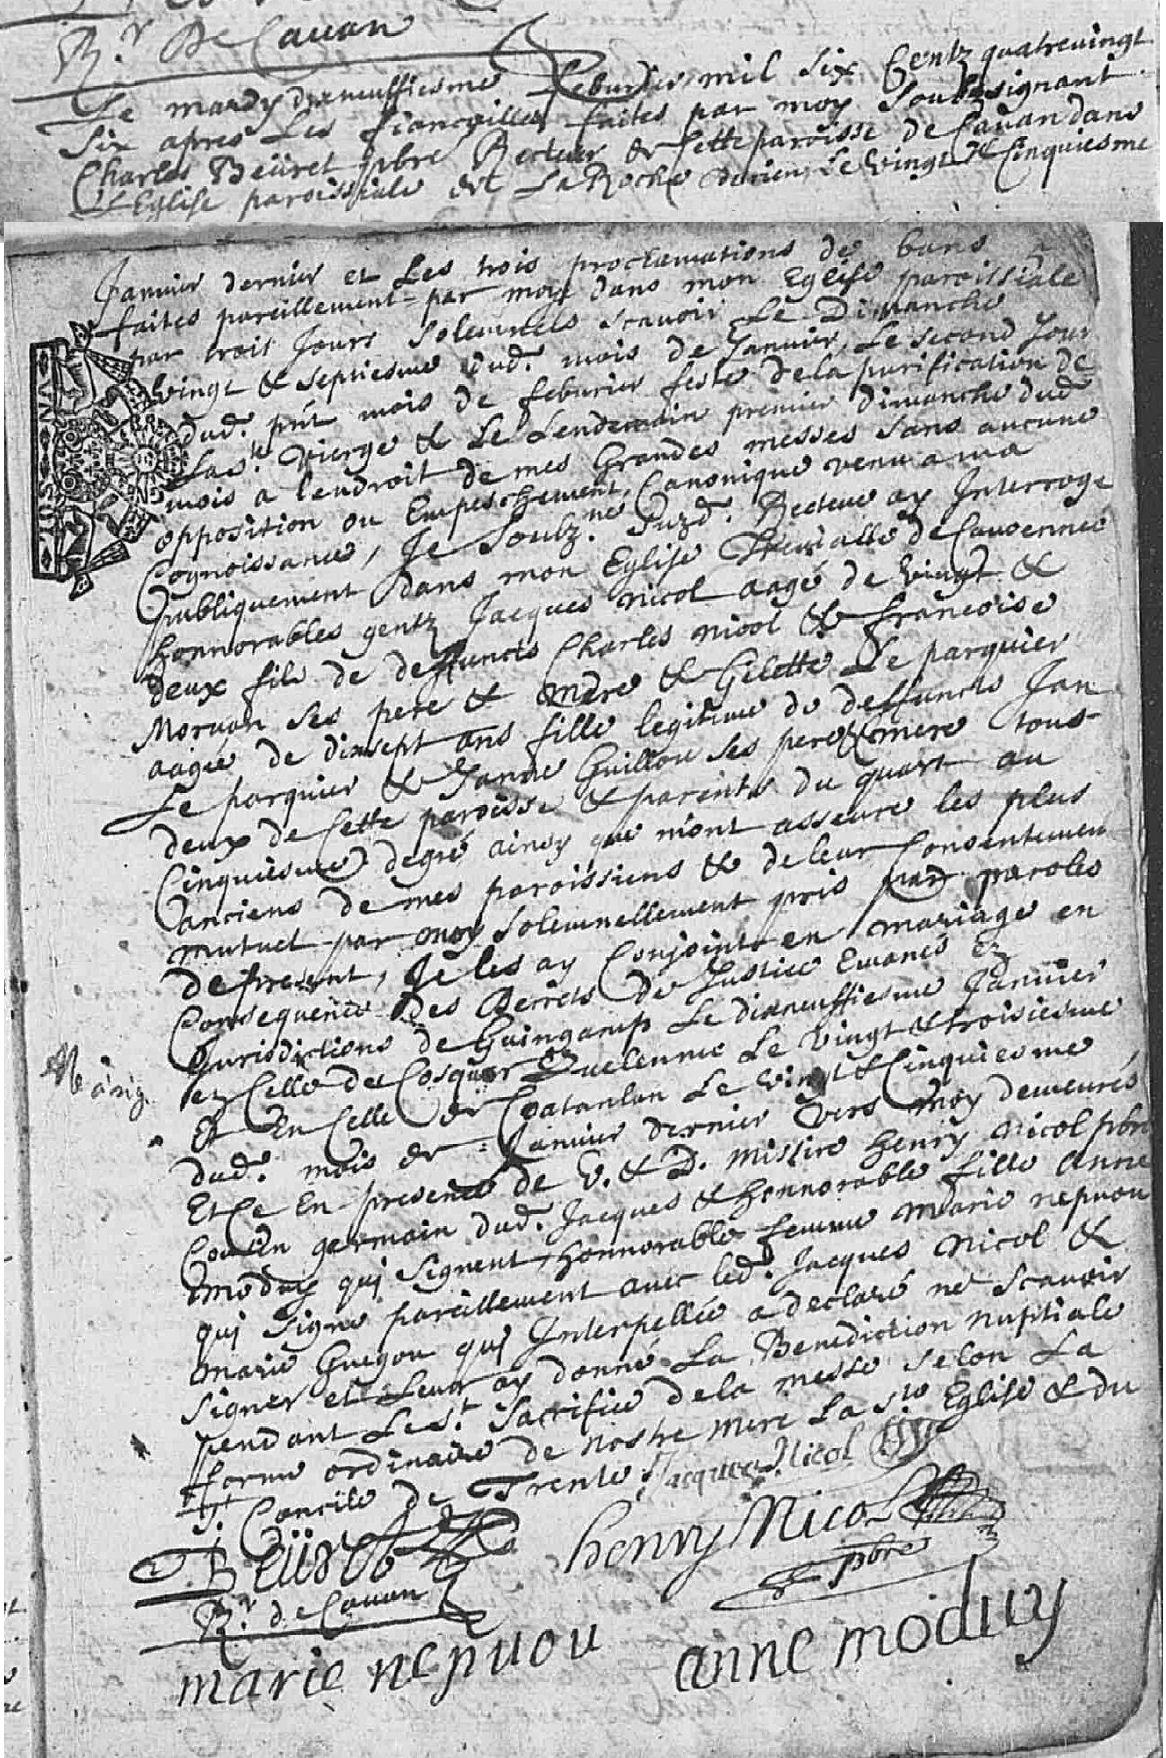 Rr De Cauan
Le mardy dixneuffiesme feburier mil six Centz quatrevingt
Six apres Les fiancailles faites par moy soubsignant
Charles Beüret pbre Recteur de Cette paroisse de Cauan dans
L'Eglise paroissiale de La Roche derien, Le vingt & Cinquiesme
Januier dernier et Les trois proclamations de bans
faites pareillement par moy dans mon Eglise paroissiale
par trois Jours solemnels scauoir Le Dimanche
vingt & septiesme dud. mois de Januier, Le second Jour
dud. pnt mois de feburier feste de la purification de
La ste vierge & Le Lendemain premier dimanche dud
mois a lendroit de mes Grandes messes sans aucune
opposition ou Empeschement Canonique venu a ma
Cognoissance, Je soubz.ne Suzd. Recteur ay Interroge
publiquement dans mon Eglise de Cauennec
honnorables gentz Jacques nicol aagé de vingt &
deux fils de deffuncts Charles nicol & francoise
Moruan ses pere & mere & Gilette Le parquier
aagée de dixsept ans fille legitime de deffuncts Jan
Le parquier & Janne Guillou ses pere & mere tous
deux de Cette paroisse & parents du quart au
Cinquiesme degré ainsy que m'ont asseuré les plus
anciens de mes paroissiens & de leur Consentement
mutuel par moy solemnellement pris par paroles
de present, Je les ay Conjoint en mariage en
Consequence des Decrets de Justice Emanés Ez
Jurisdictions de Guingamp Le dixneuffiesme Januier
ez Celle de Cosquer Le vingt & troisiesme
Mariag.
Et En Celle de Coatanlan Le vingt & Cinquiesme
dud. mois de Januier dernier vers moy demeurés
Et Ce En presence de V. & D. missire henry nicol pbre
Cousin germain dud. Jacques & honnorable fille Anne
moduy qui signent, honnorable femme Marie nepuou
qui signe pareillement avec led. Jacques Nicol &
marie Guegou qui Interpellée a declaré ne scauoir
signer et Leur ay donné La Benediction nuptiale
pendant Le St. Sacrifice de la messe selon La
forme ordinaire de nostre mere La Ste Eglise & du
St Concile de Trente. Jacques Nicol
C. Beüret henry Nicol
Rr de Cauan pbre
marie nepuou anne moduy